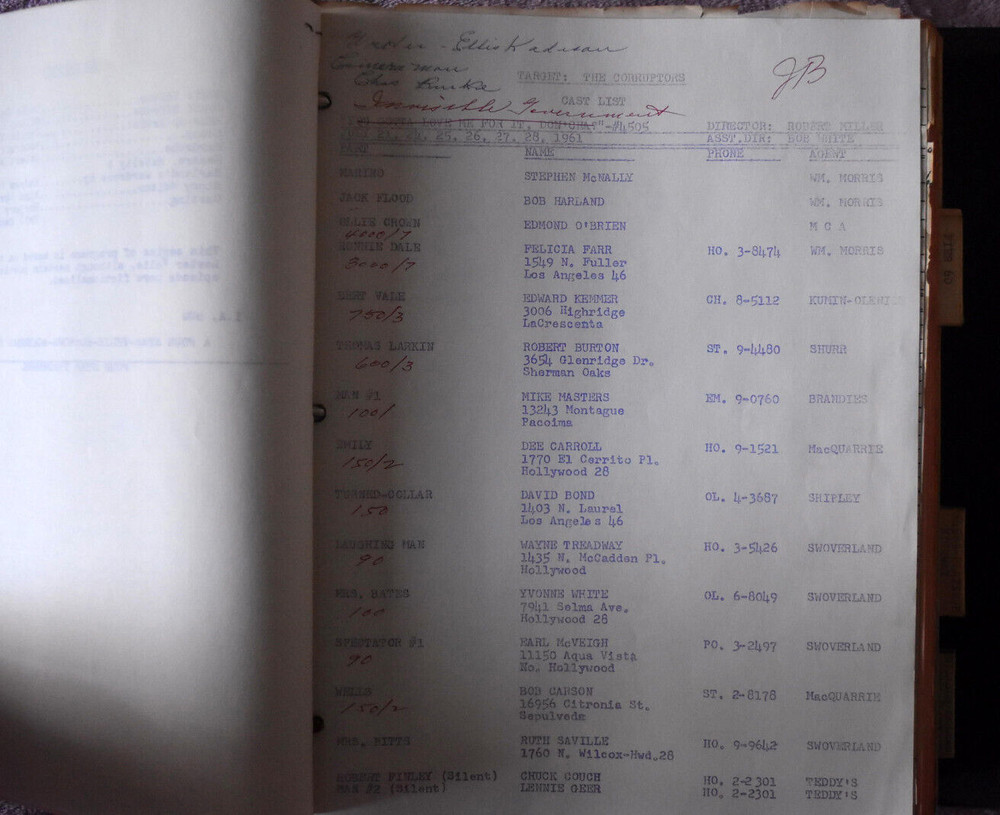 Ellis Kadison
Camera man
Chas Burke
JB
TARGET: THE CORRUPTORS
CAST LIST
Invisible Government
ME FOR IT, DON CHAS"-#4595 DIRECTOR: ROBERT MILLER
25, 26, 27, 28, 1961 ASST.DIR: BOB WHITE
PART NAME PHONE AGENT
MARINO STEPHEN McNALLY WM. MORRIS
JACK FLOOD BOB HARLAND WM. MORRIS
OLLIE CROWN EDMOND O'BRIEN M C A
4000/7
BONNIE DALE FELICIA FARR HO. 3-8474 WM. MORRIS
3000/7 1549 N. Fuller
Los Angeles 46
BERT VALE EDWARD KEMMER CH. 8-5112 KUMIN-OLENICK
750/3 3006 Highridge
LaCrescenta
THOMAS LARKIN ROBERT BURTON ST. 9-4480 SHURR
600/3 3654 Glenridge Dr.
Sherman Oaks
MAN #1 MIKE MASTERS EM. 9-0760 BRANDIES
100/ 13243 Montague
Pacoima
EMILY DEE CARROLL HO. 9-1521 MacQUARRIE
150/2 1770 El Cerrito Pl.
Hollywood 28
TURNED-COLLAR DAVID BOND OL. 4-3687 SHIPLEY
150 1403 N. Laurel
Los Angeles 46
LAUGHING MAN WAYNE TREADWAY HO. 3-5426 SWOVERLAND
90 1435 N. McCadden Pl.
Hollywood
MRS. BATES YVONNE WHITE OL. 6-8049 SWOVERLAND
100 7941 Selma Ave.
Hollywood 28
SPECTATOR #1 EARL McVEIGH PO. 3-2497 SWOVERLAND
90 11150 Aqua Vista
No. Hollywood
WELLS BOB CARSON ST. 2-8178 MacQUARRIE
150/2 16956 Citronia St.
Sepulveda
MRS. PITTS RUTH SAVILLE HO. 9-9642 SWOVERLAND
1760 N. Wilcox-Hwd.28
ROBERT FINLEY (Silent) CHUCK COUCH HO. 2-2301 TEDDY'S
MAN #2 (Silent) LENNIE GEER HO. 2-2301 TEDDY'S